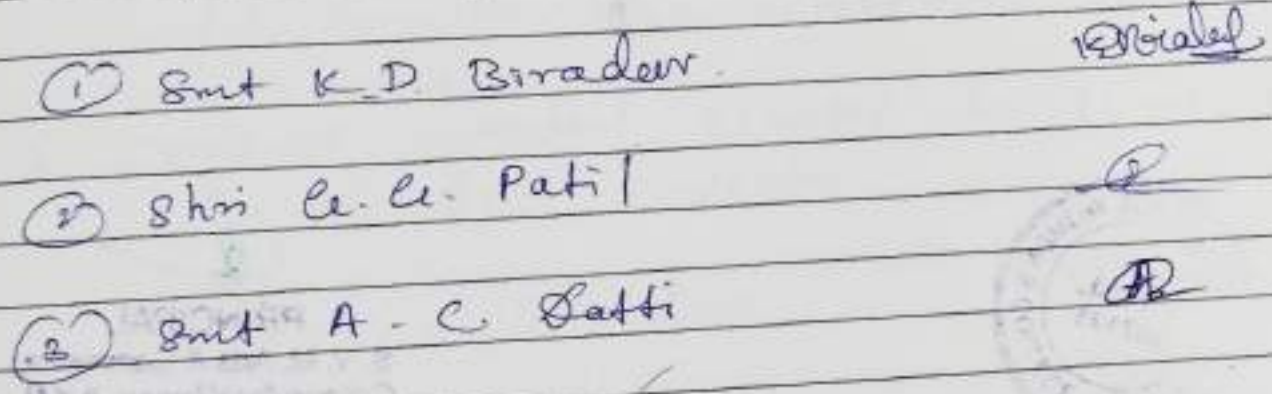 ① Smt K.D Biradar.
② Shri G.G. Patil
③ Smt A. C. Satti